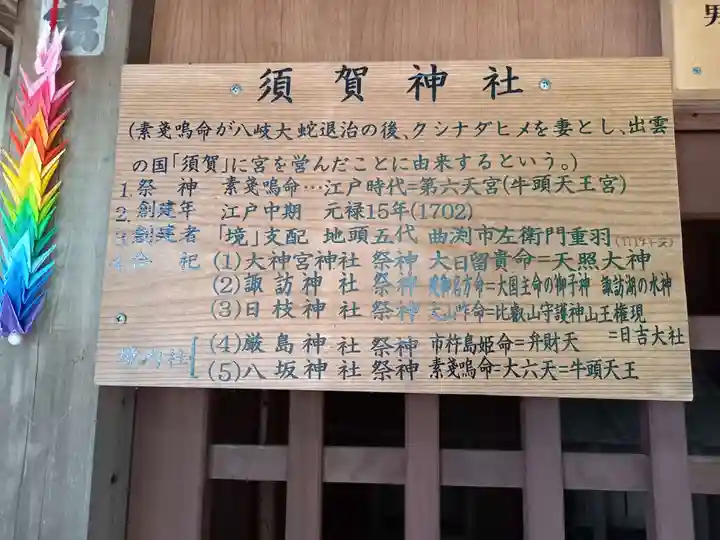 須賀神社
(素戔嗚命が八岐大蛇退治の後、クシナダヒメを妻とし、出雲
の国「須賀」に宮を営んだことに由来するという。)
1.祭神 素戔嗚命…江戸時代=第六天宮(牛頭天王宮)
2.創建年 江戸中期 元禄15年(1702)
3.創建者 「境」支配 地頭五代 曲渕市左衛門重羽
4.合祀 (1)大神宮神社 祭神 大日留貴命=天照大神
(2)諏訪神社 祭神 建御名方命=大国主命の御子神 諏訪湖の水神
(3)日枝神社 祭神 大山咋命=比叡山守護神山王権現
=日吉大社
境内社 (4)厳島神社 祭神 市杵島姫命=弁財天
(5)八坂神社 祭神 素戔嗚命=大六天=牛頭天王
男